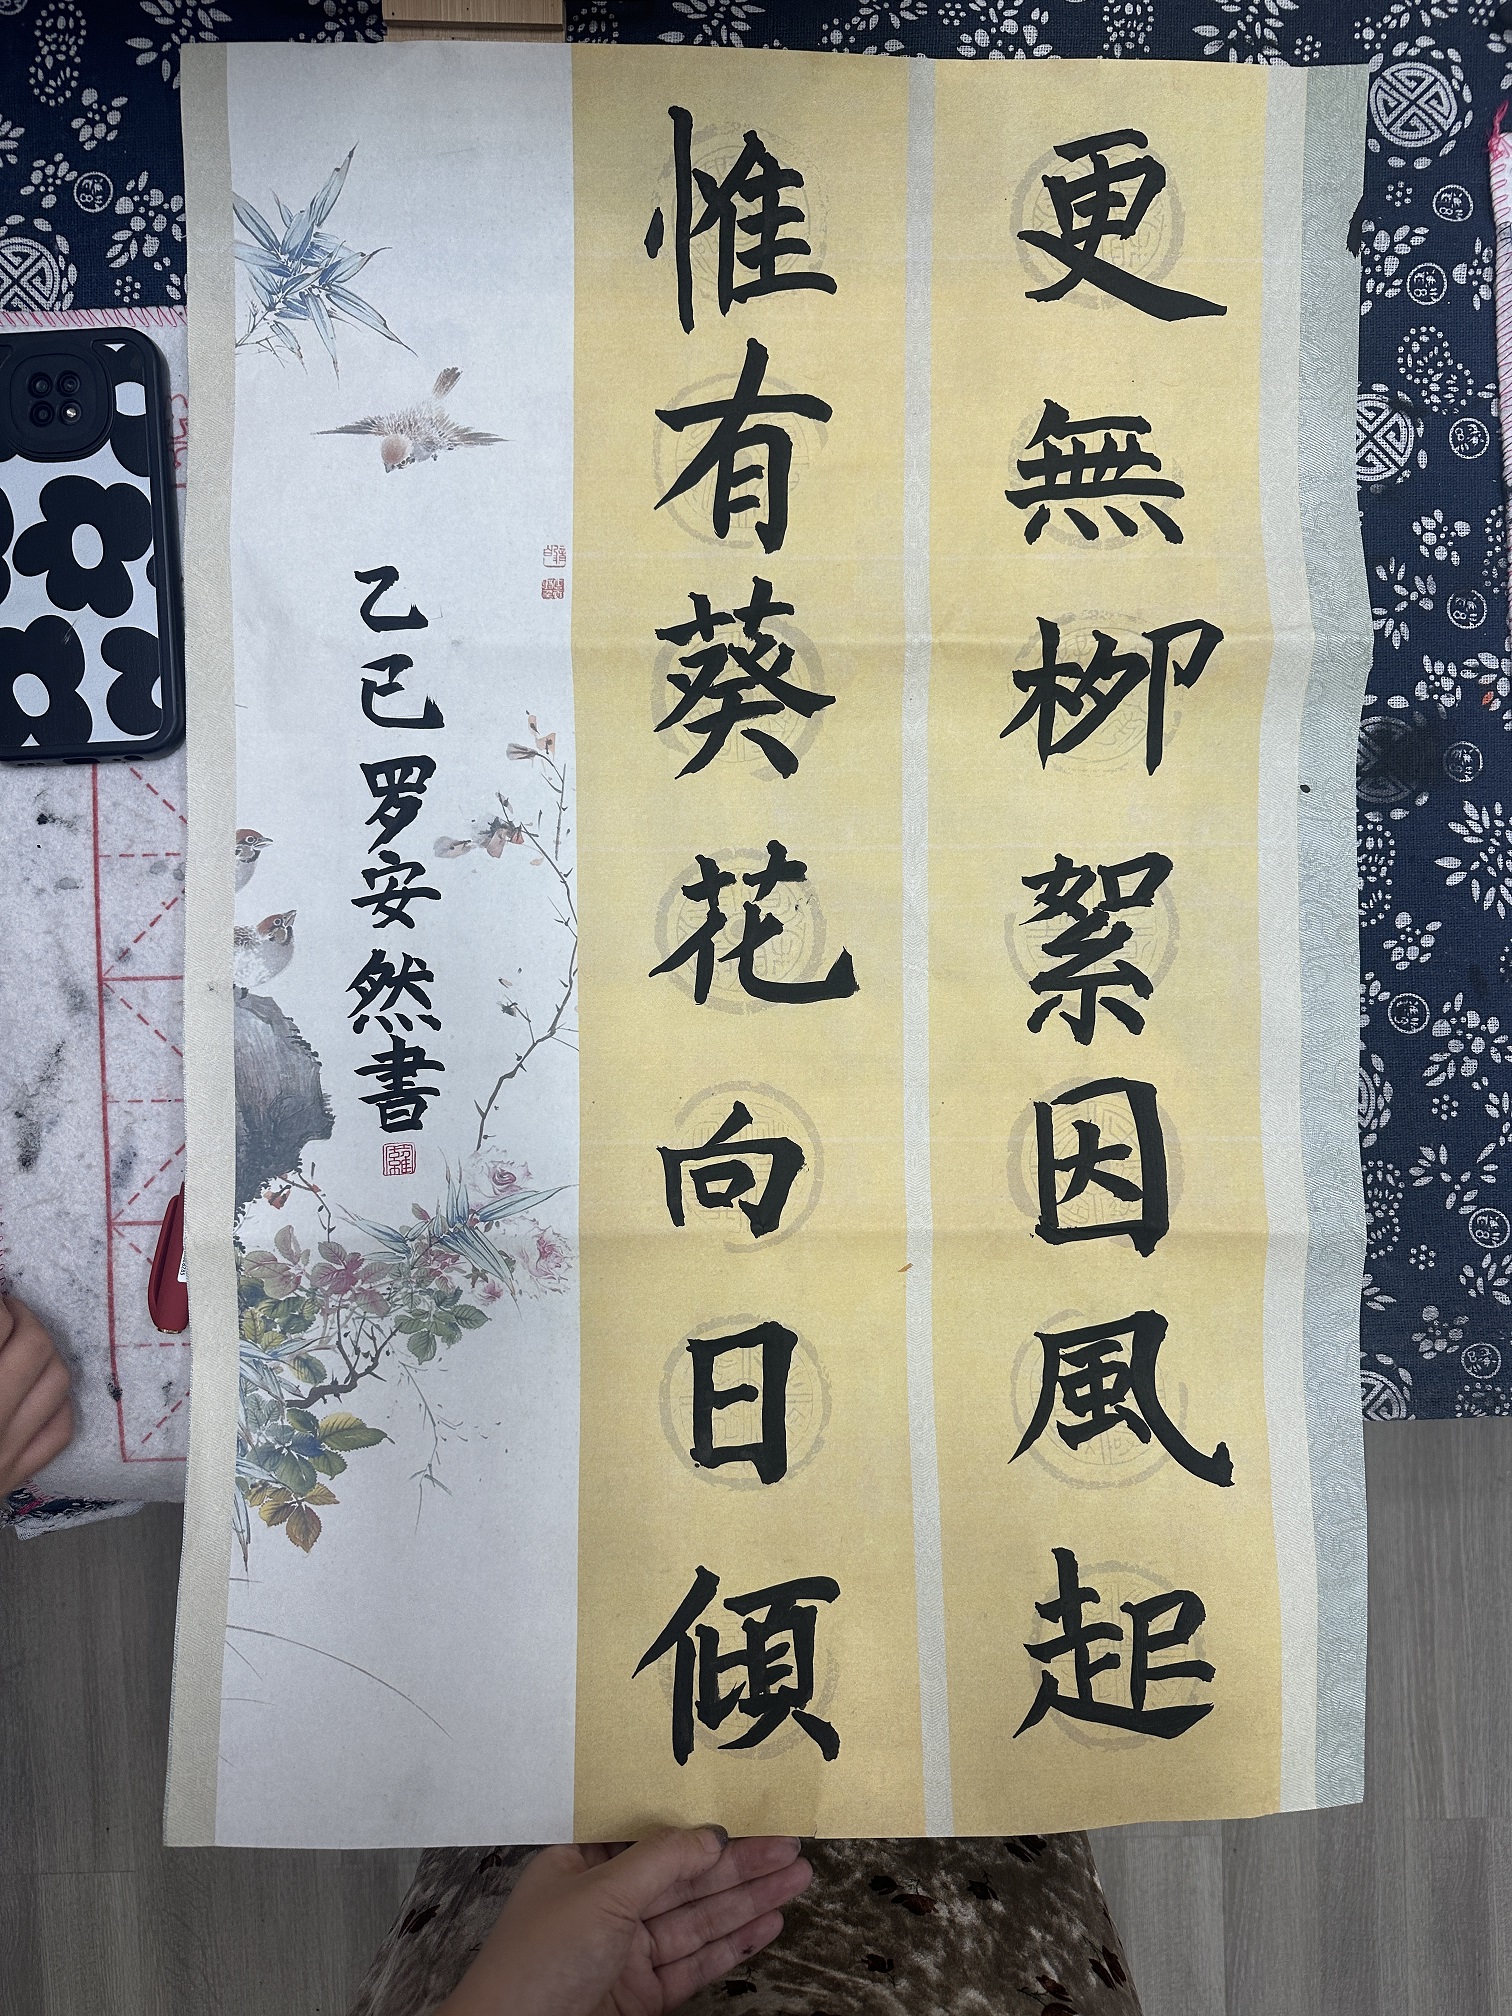 更無柳絮因風起
惟有葵花向日傾
乙巳罗安然書